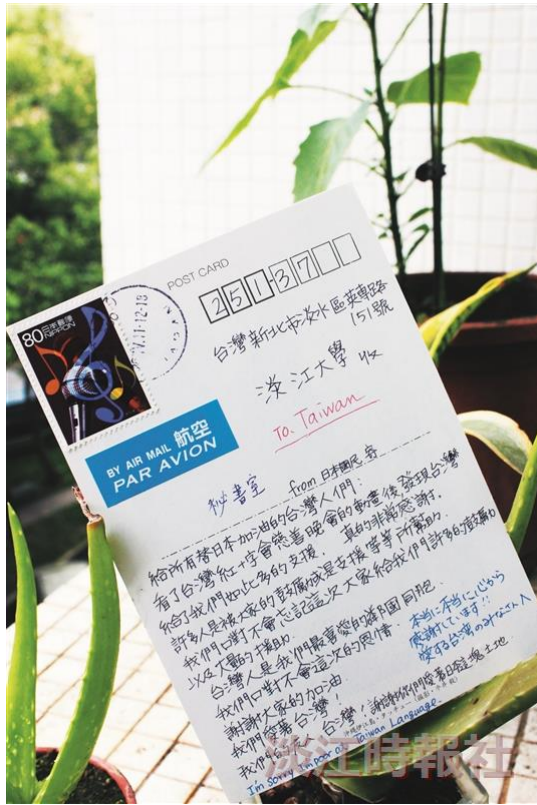 POST CARD
251-37
80 日本郵便
NIPPON
台灣新北市淡水區英專路
151號
淡江大學 收
To. Taiwan
BY AIR MAIL 航空
PAR AVION
秘書室
from 日本國民 寄
給所有替日本加油的台灣人們:
看了台灣紅十字會慈善晚會的動畫後發現台灣
給了我們如此多的支援. 真的非常感謝.
許多人是被大家的鼓勵或是支援等等所幫助.
我們口對不會忘記這次大家給我們許多的鼓勵
以及大量的援助.
台灣人是我們最喜愛的鄰國同胞.
我們口對不會這次的恩情.
謝謝大家的加油!
本当に本当に心から
感謝しています!!
愛する台湾のみなさんへ
台灣!
I'm sorry I'm poor at Taiwan Language.
淡江時報社